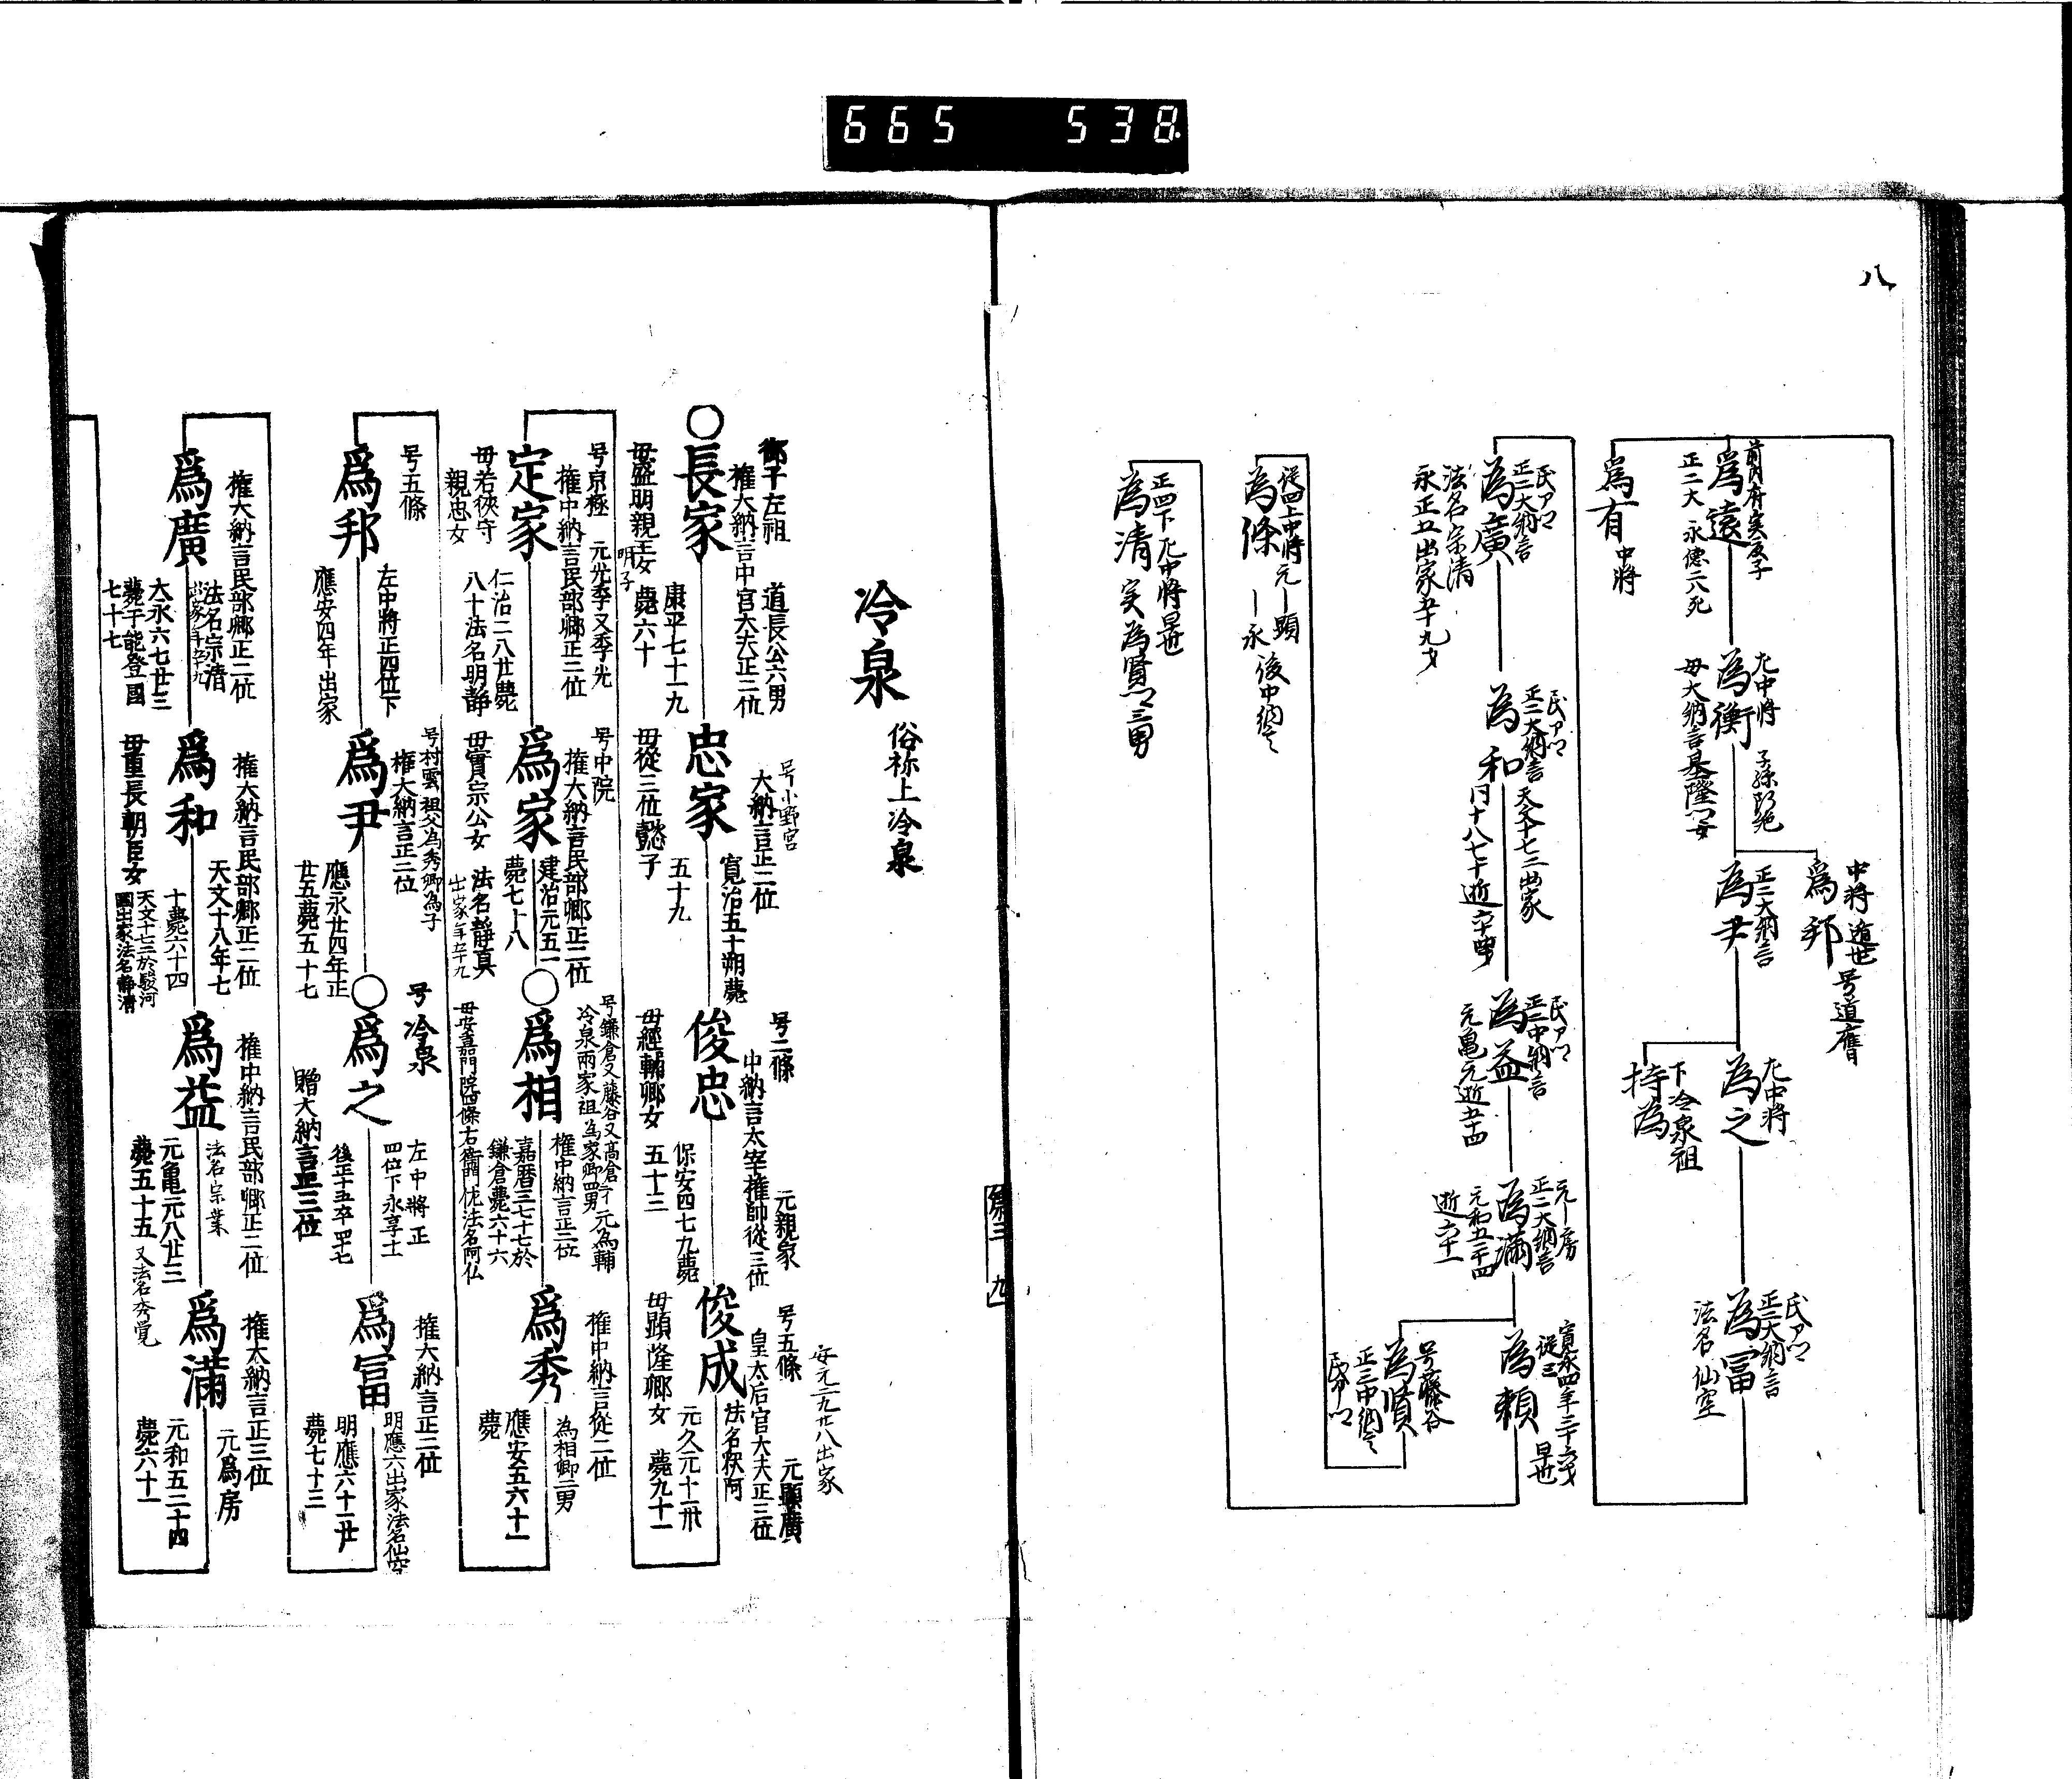 665 538
八
前内府実友子
爲遠
正二大 永徳二八死
左中將 子孫断絶
為衡
母大納言基隆女
中将 遁世 号道鷹
爲邦
正二大納言
為尹
左中将
為之
下冷泉祖
持為
正二大納言
為冨
法名 仙空
爲有 中將
正二大納言
為廣
法名宗清
永正五出家
正二大納言 天文十七二出家
為和
正二中納言
為益
元亀元逝
元房
正二大納言
為滿
元和五二十四
逝六十一
寛永四年
従三
為頼 早世
号藤谷
為賢
正三中納言
從四上中將 元顯
為條
永 後中納言
正四下左中將 早世
為清 実為賢三男
冷泉 俗称上冷泉
第三 九
御子左祖 道長公六男
權大納言中宮大夫正二位
長家
康平七十一九
薨六十
母盛明親王女 明子
号小野宮
大納言正二位
忠家
寛治五十朔薨
五十九
母從三位懿子
号二條 元親家
中納言太宰權帥從三位
俊忠
保安四七九薨
五十三
母經輔卿女
安元二九廿八出家
号五條 元顯廣
皇太后宮大夫正三位
俊成
法名釈阿
元久元十一卅
薨九十一
母顯隆卿女
号京極 元光季又季光
權中納言民部卿正二位
定家
仁治二八廿薨
八十法名明静
母若狹守
親忠女
号中院
權大納言民部卿正二位
爲家
建治元五一
薨七十八
法名靜真
母實宗公女
号鎌倉又藤谷又高倉 元為輔
冷泉兩家祖 為家卿四男
爲相
權中納言正二位
嘉暦三七十七於
鎌倉薨六十六
母安嘉門院四條右衛門佐法名阿仏
權中納言從二位
爲秀
為相卿二男
應安五六十一
薨
号五條
爲邦
左中將正四位下
應安四年出家
号村雲 祖父為秀卿為子
權大納言正二位
爲尹
應永廿四年正
廿五薨五十七
号冷泉
爲之
左中將正
四位下永享十一
後正十五卒四十七
贈大納言正三位
權大納言正二位
爲冨
明應六出家法名仙空
明應六十一廿
薨七十三
權大納言民部卿正二位
爲廣
法名宗清
大永六七廿三
薨于能登國
七十七
權大納言民部卿正二位
爲和
天文十八年七
十薨六十四
天文十七二於駿河
國出家法名静清
母重長朝臣女
權中納言民部卿正二位
爲益
法名宗業
元亀元八廿三
薨五十五 又法名秀覚
權大納言正三位
爲滿
元爲房
元和五二十四
薨六十一